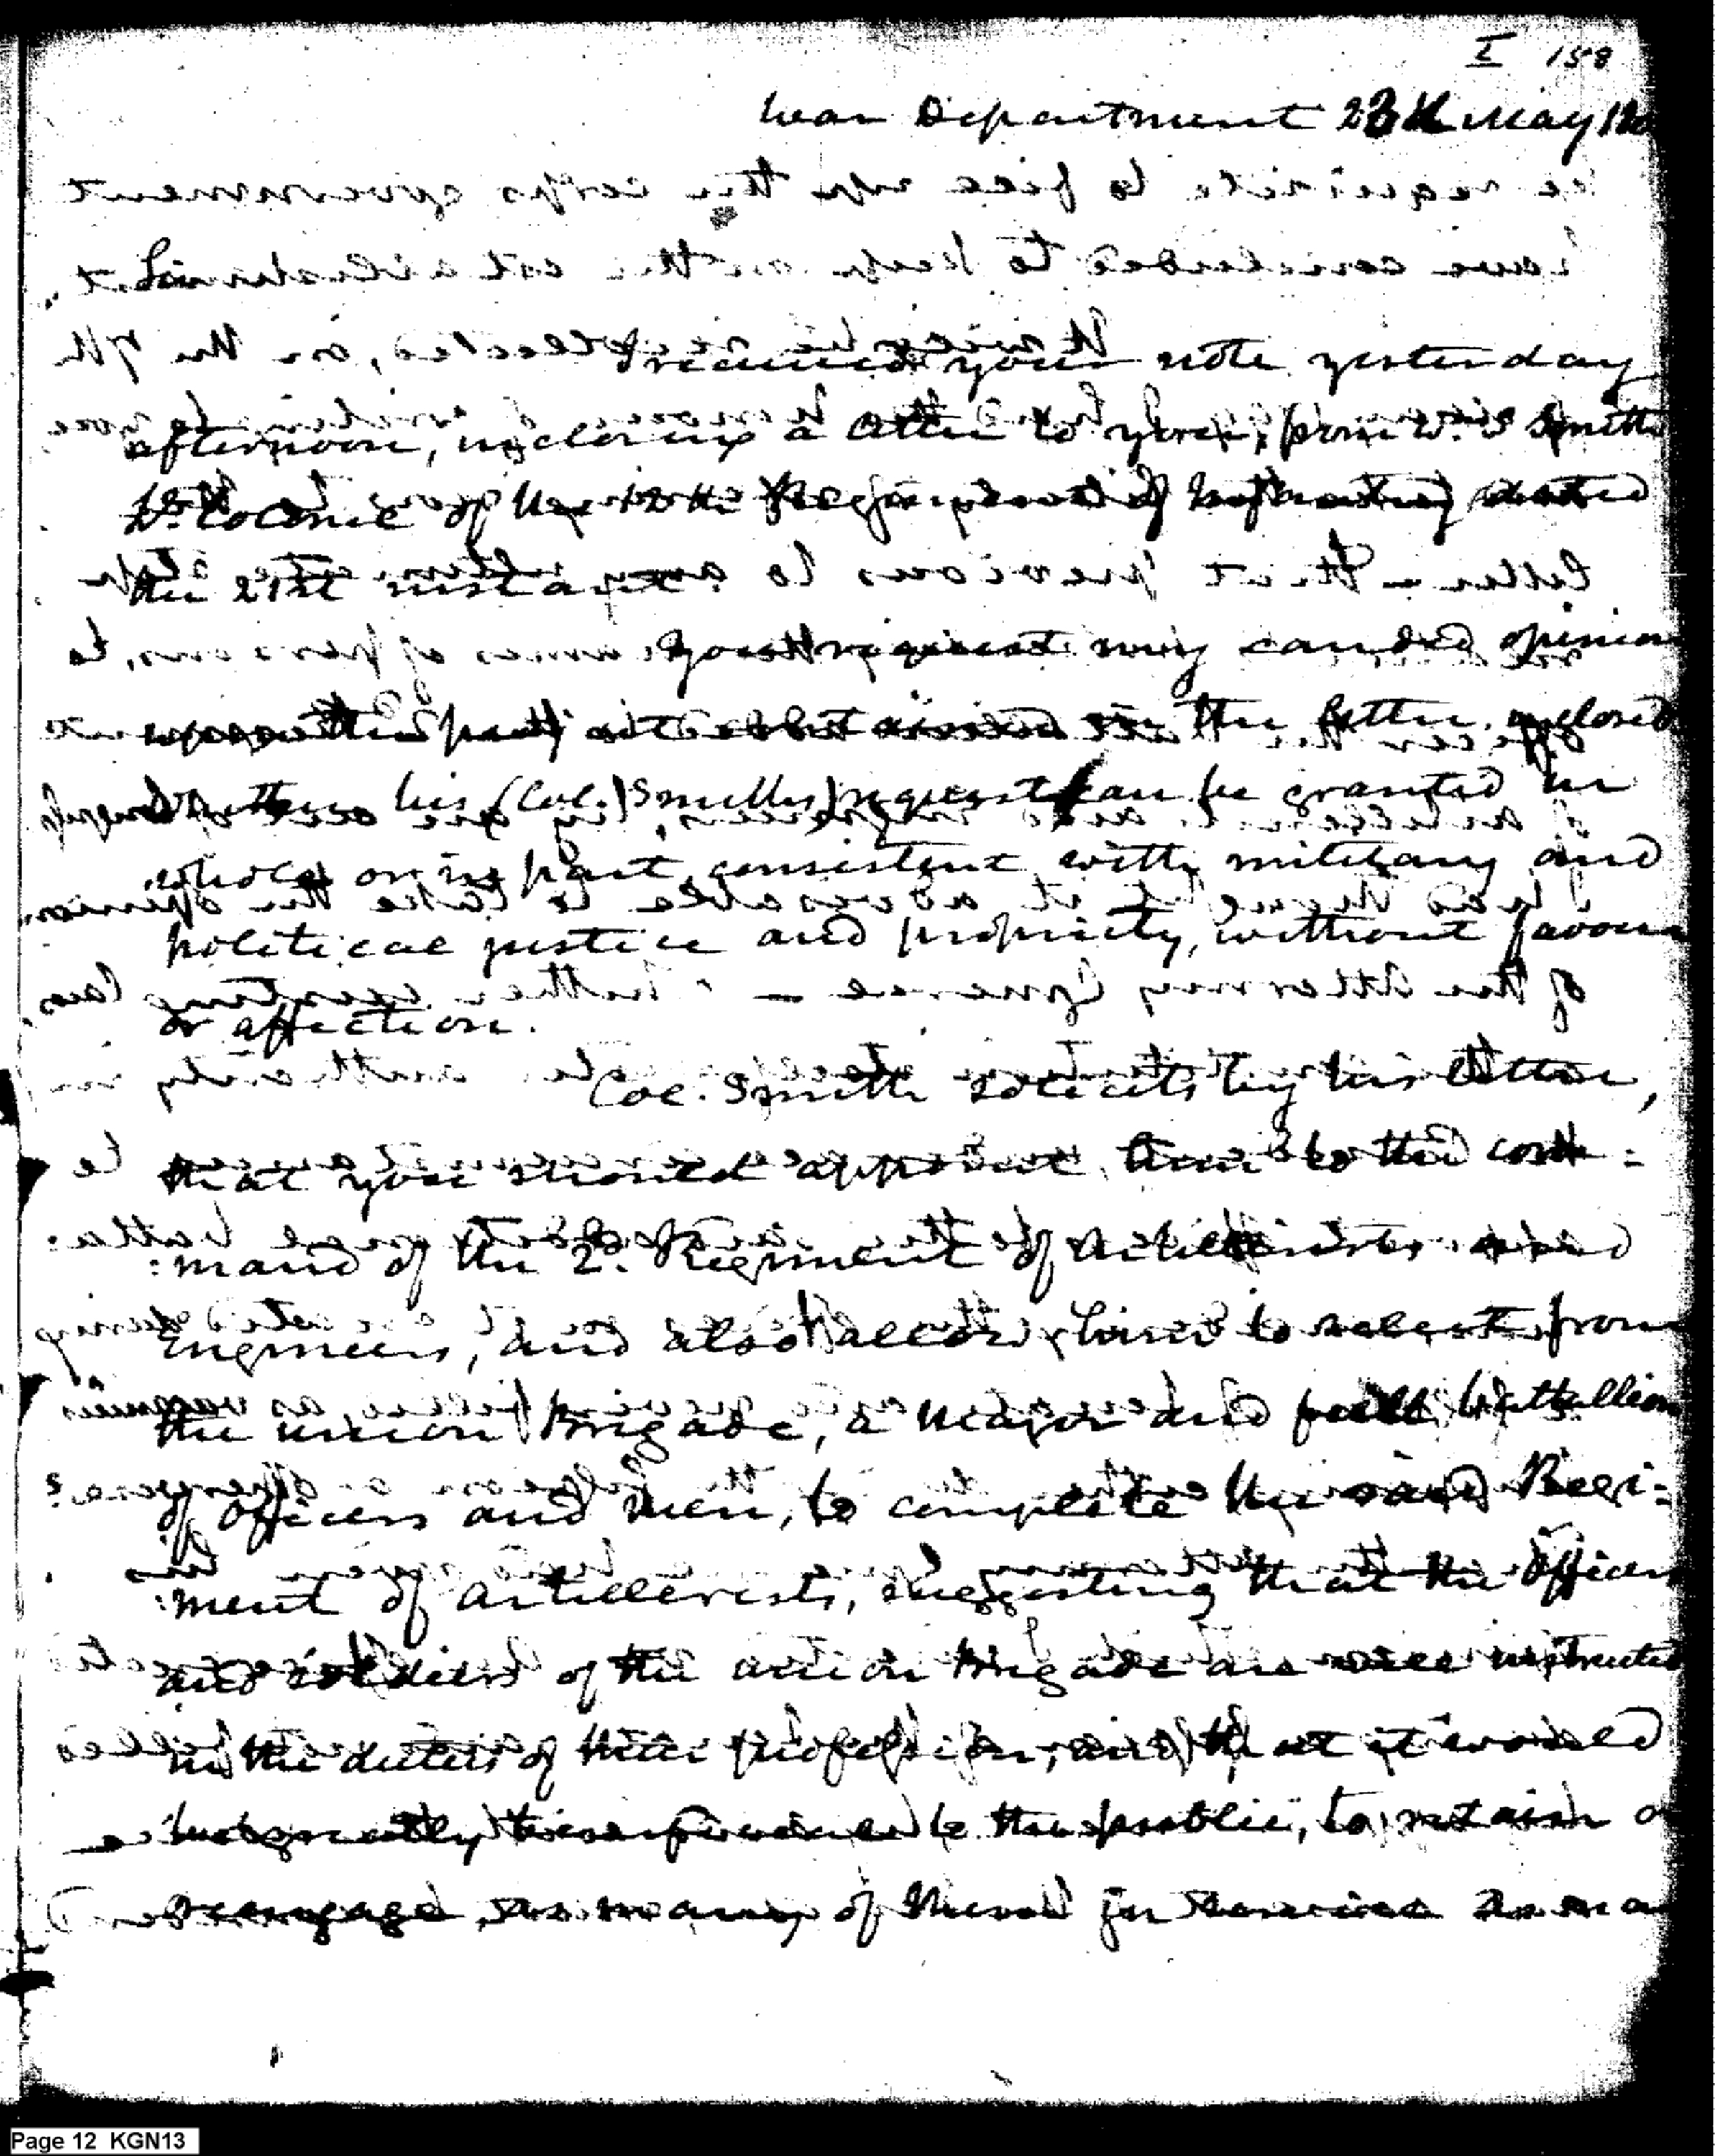 I 158
War Department 28th May 180
I received your note yesterday
afternoon, inclosing a letter to you, from W. S Smith
Lt. Colonel of the 12th Regiment of Infantry dated
the 21st instant.
You request my candid opinion
upon the in the letter inclosed
whether his (Col. Smiths) request can be granted in
whole or in part, consistent with military and
political justice and propriety, without favour
or affection.
Col. Smith solicits by his letter,
that you should appoint him to the com=
:mand of the 2d. Regiment of Artillerists and
Engineers, and also allow him to select from
the union Brigade, a Major and full battallion
of officers and men, to complete the said Regi=
:ment of Artillerists, suggesting that the officers
and soldiers of the union Brigade are well instructed
in the duties of their profession, and that it would
be greatly to the public, to retain or
reengage, as many of them for service as
Page 12 KGN13